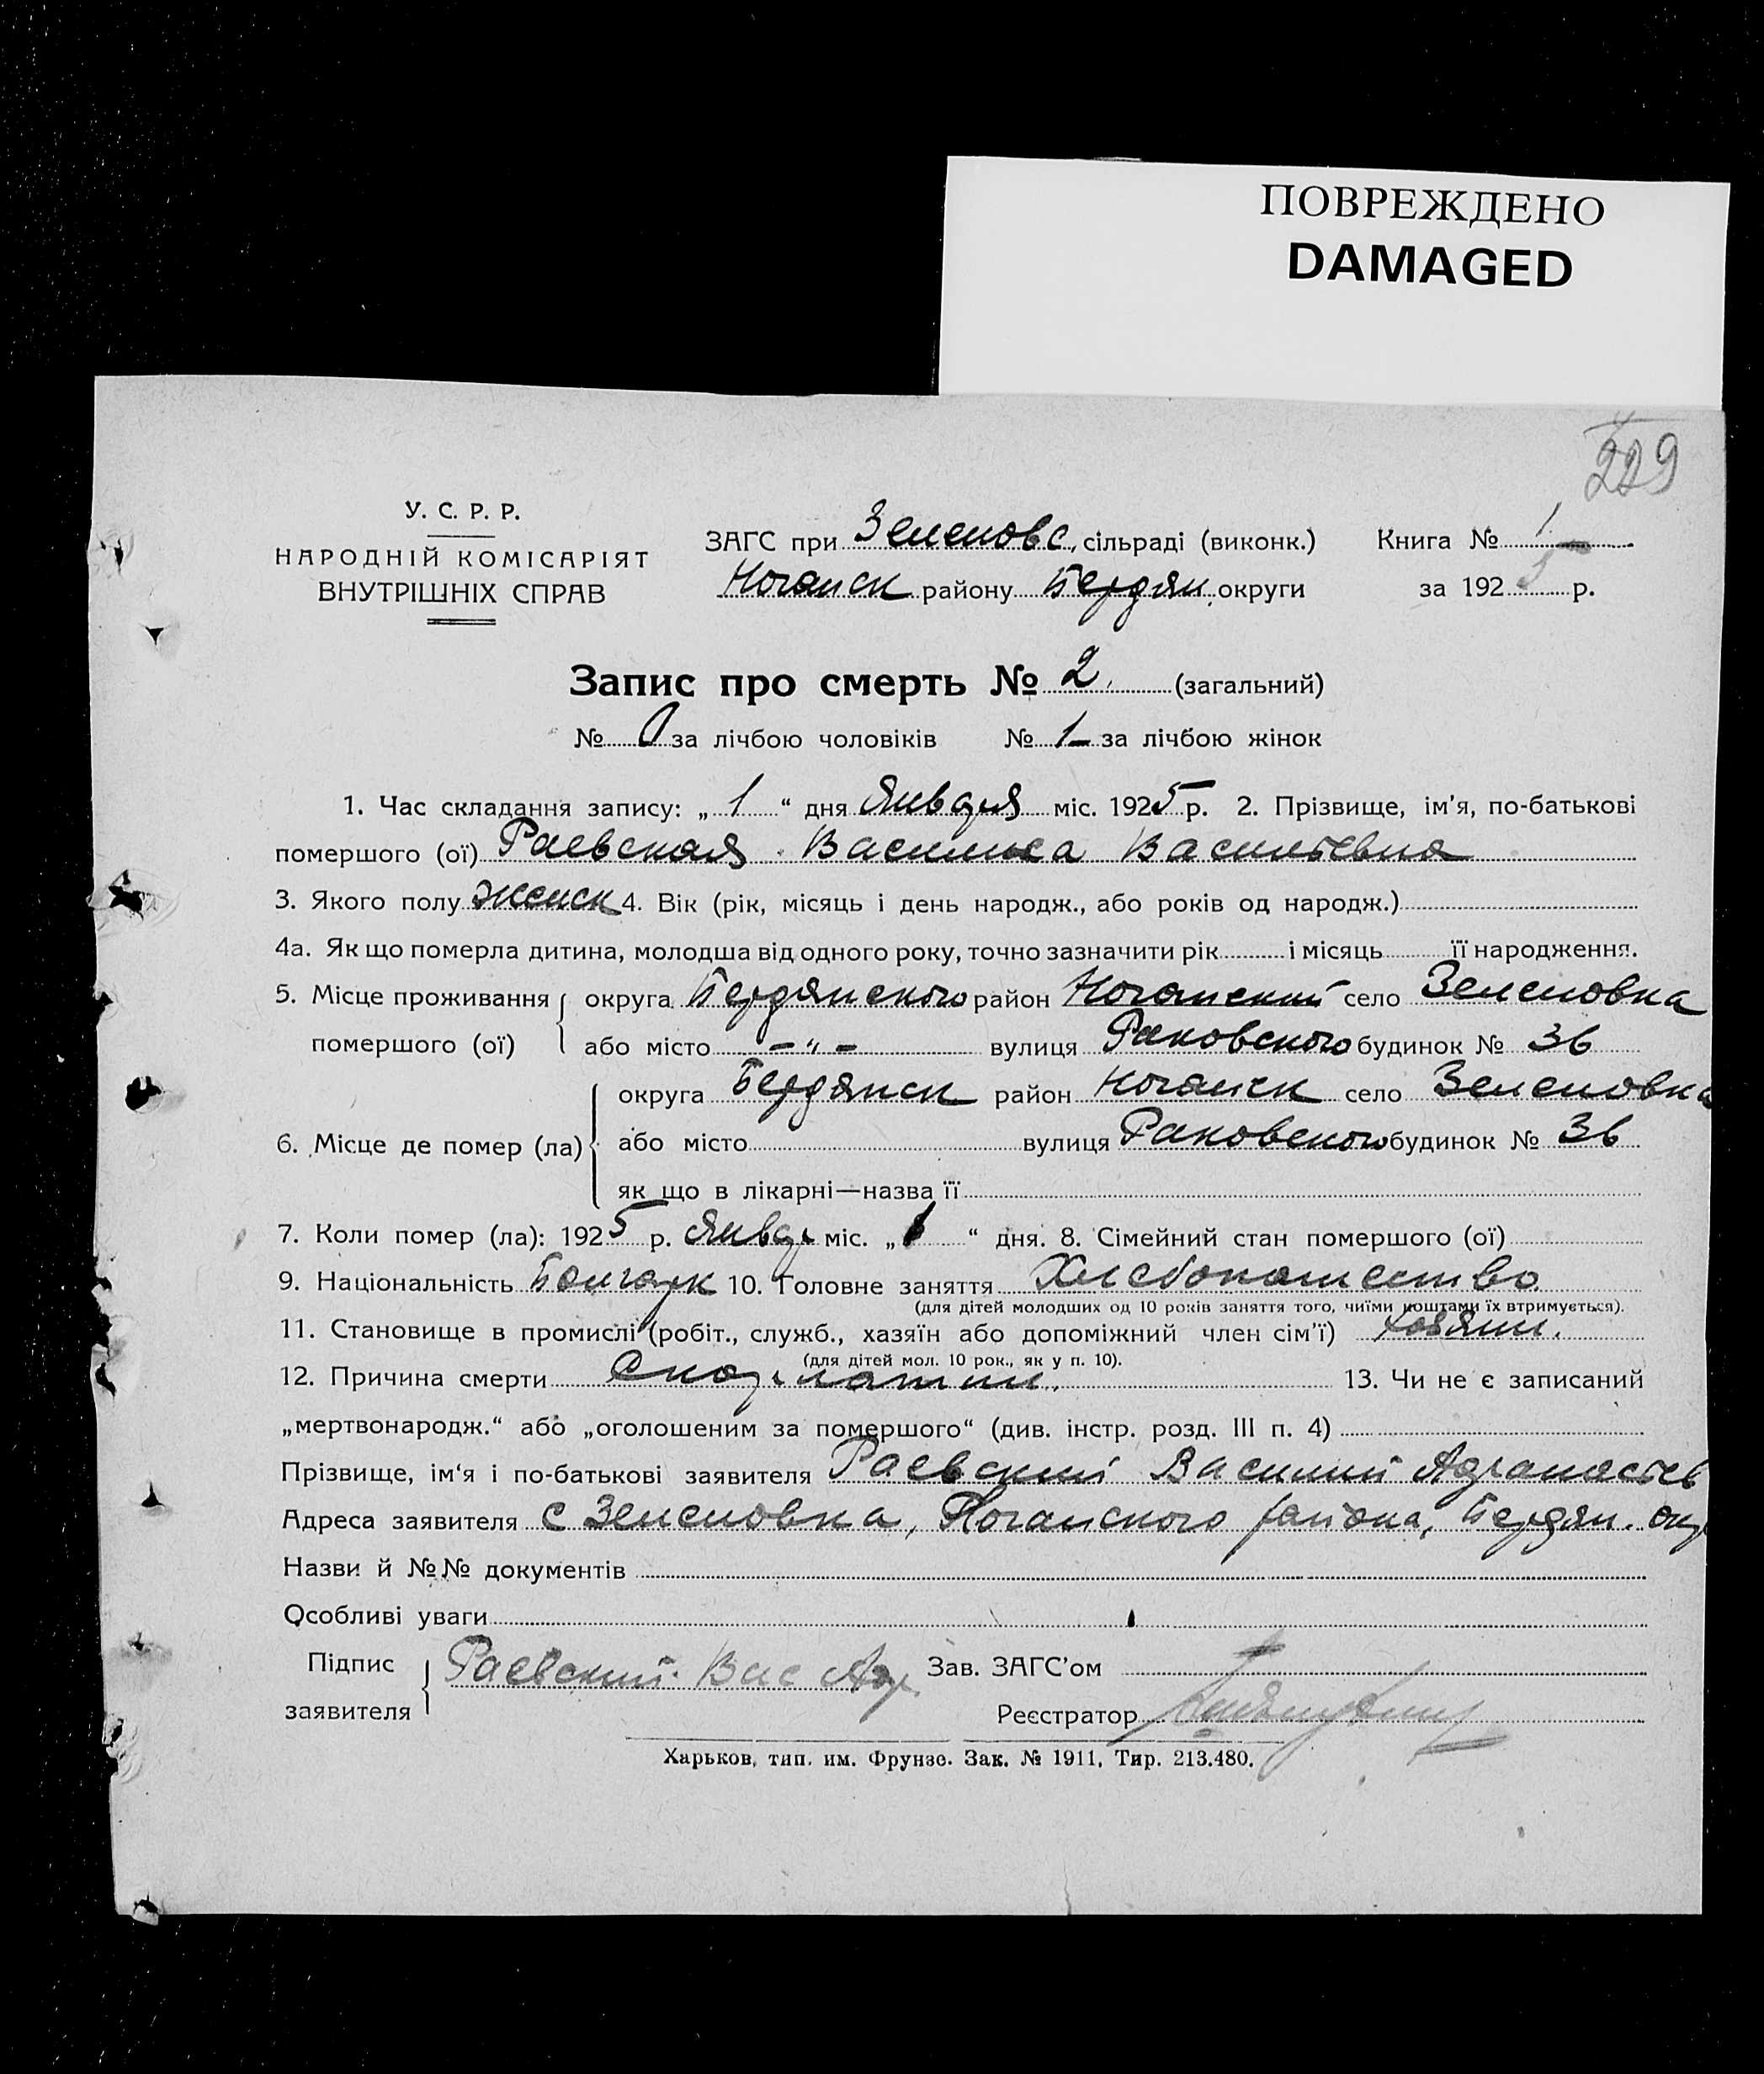 ПОВРЕЖДЕНО
DAMAGED
229
У. С. Р. Р.
НАРОДНІЙ КОМІСАРІЯТ
ВНУТРІШНІХ СПРАВ
ЗАГС при Зеленовс. сільраді (виконк.) Книга № 1
Ногайск району Бердян. округи за 1925 р.
Запис про смерть № 2. (загальний)
№ 0 за лічбою чоловіків № 1 за лічбою жінок
1. Час складання запису: „ 1 “ дня Января міс. 1925 р. 2. Прізвище, ім'я, по-батькові
помершого (ої) Раевская Василиса Васильевна
3. Якого полу женск 4. Вік (рік, місяць і день народж., або років од народж.)
4а. Як що померла дитина, молодша від одного року, точно зазначити рік і місяць її народження.
5. Місце проживання округа Бердянского район Ногайский село Зеленовка
помершого (ої) або місто — „ — вулиця Раковского будинок № 36
округа Бердянск район Ногайск село Зеленовка
6. Місце де помер (ла) або місто вулиця Раковского будинок № 36
як що в лікарні—назва її
7. Коли помер (ла): 1925 р. Январ міс. „ “ дня. 8. Сімейний стан помершого (ої)
9. Національність Болгарк 10. Головне заняття Хлебопашество.
(для дітей молодших од 10 років заняття того, чиїми коштами їх втримується).
11. Становище в промислі (робіт., служб., хазяїн або допоміжний член сім'ї) хозяин.
(для дітей мол. 10 рок., як у п. 10).
12. Причина смерти Скарлатин. 13. Чи не є записаний
„мертвонародж.“ або „оголошеним за помершого“ (див. інстр. розд. III п. 4)
Прізвище, ім‘я і по-батькові заявителя Раевский Василий
Адреса заявителя с Зеленовка, Ногайского района, Бердян. окр
Назви й №№ документів
Особливі уваги
Підпис Раевский Вас Зав. ЗАГС'ом
заявителя Реєстратор
Харьков, тип. им. Фрунзе. Зак. № 1911, Тир. 213.480.